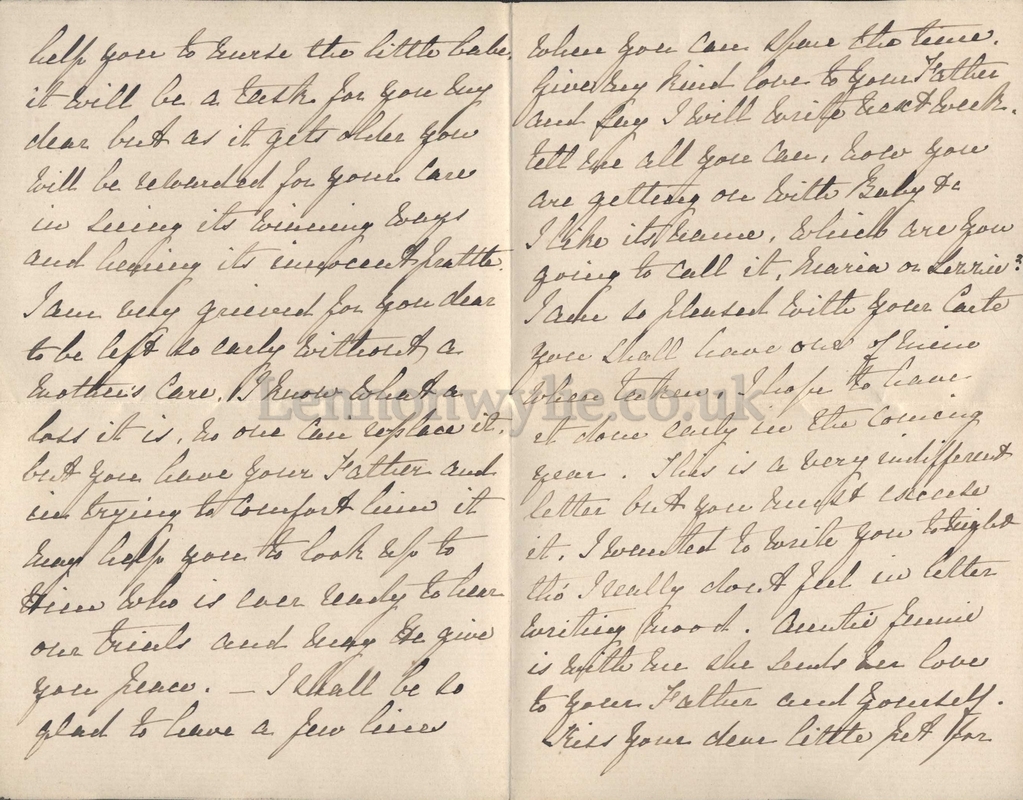 help you to nurse the little babe,
it will be a task for you my
dear but as it gets older you
will be rewarded for your care
in seeing its winning ways
and hearing its innocent prattle.
I am very grieved for you dear
to be left so early without a
Mother's care. I know what a
loss it is, no one can replace it,
but you have your Father and
in trying to comfort him it
may help you to look up to
Him who is ever ready to hear
our trials and may He give
you peace. – I shall be so
glad to have a few lines
when you can spare the time.
Give my kind love to your Father
and say I will write next week.
tell me all you can, how you
are getting on with Baby &c
I like its name, which are you
going to call it, Maria or Lizzie?
I am so pleased with your Carte
you shall have one of mine
when taken. I hope to have
it done early in the coming
year. This is a very indifferent
letter but you must excuse
it. I wanted to write you tonight
tho' I really don't feel in letter
writing mood. Auntie Jennie
is with me she sends her love
to your Father and yourself.
Kiss your dear little pet for
Lennonwylie.co.uk